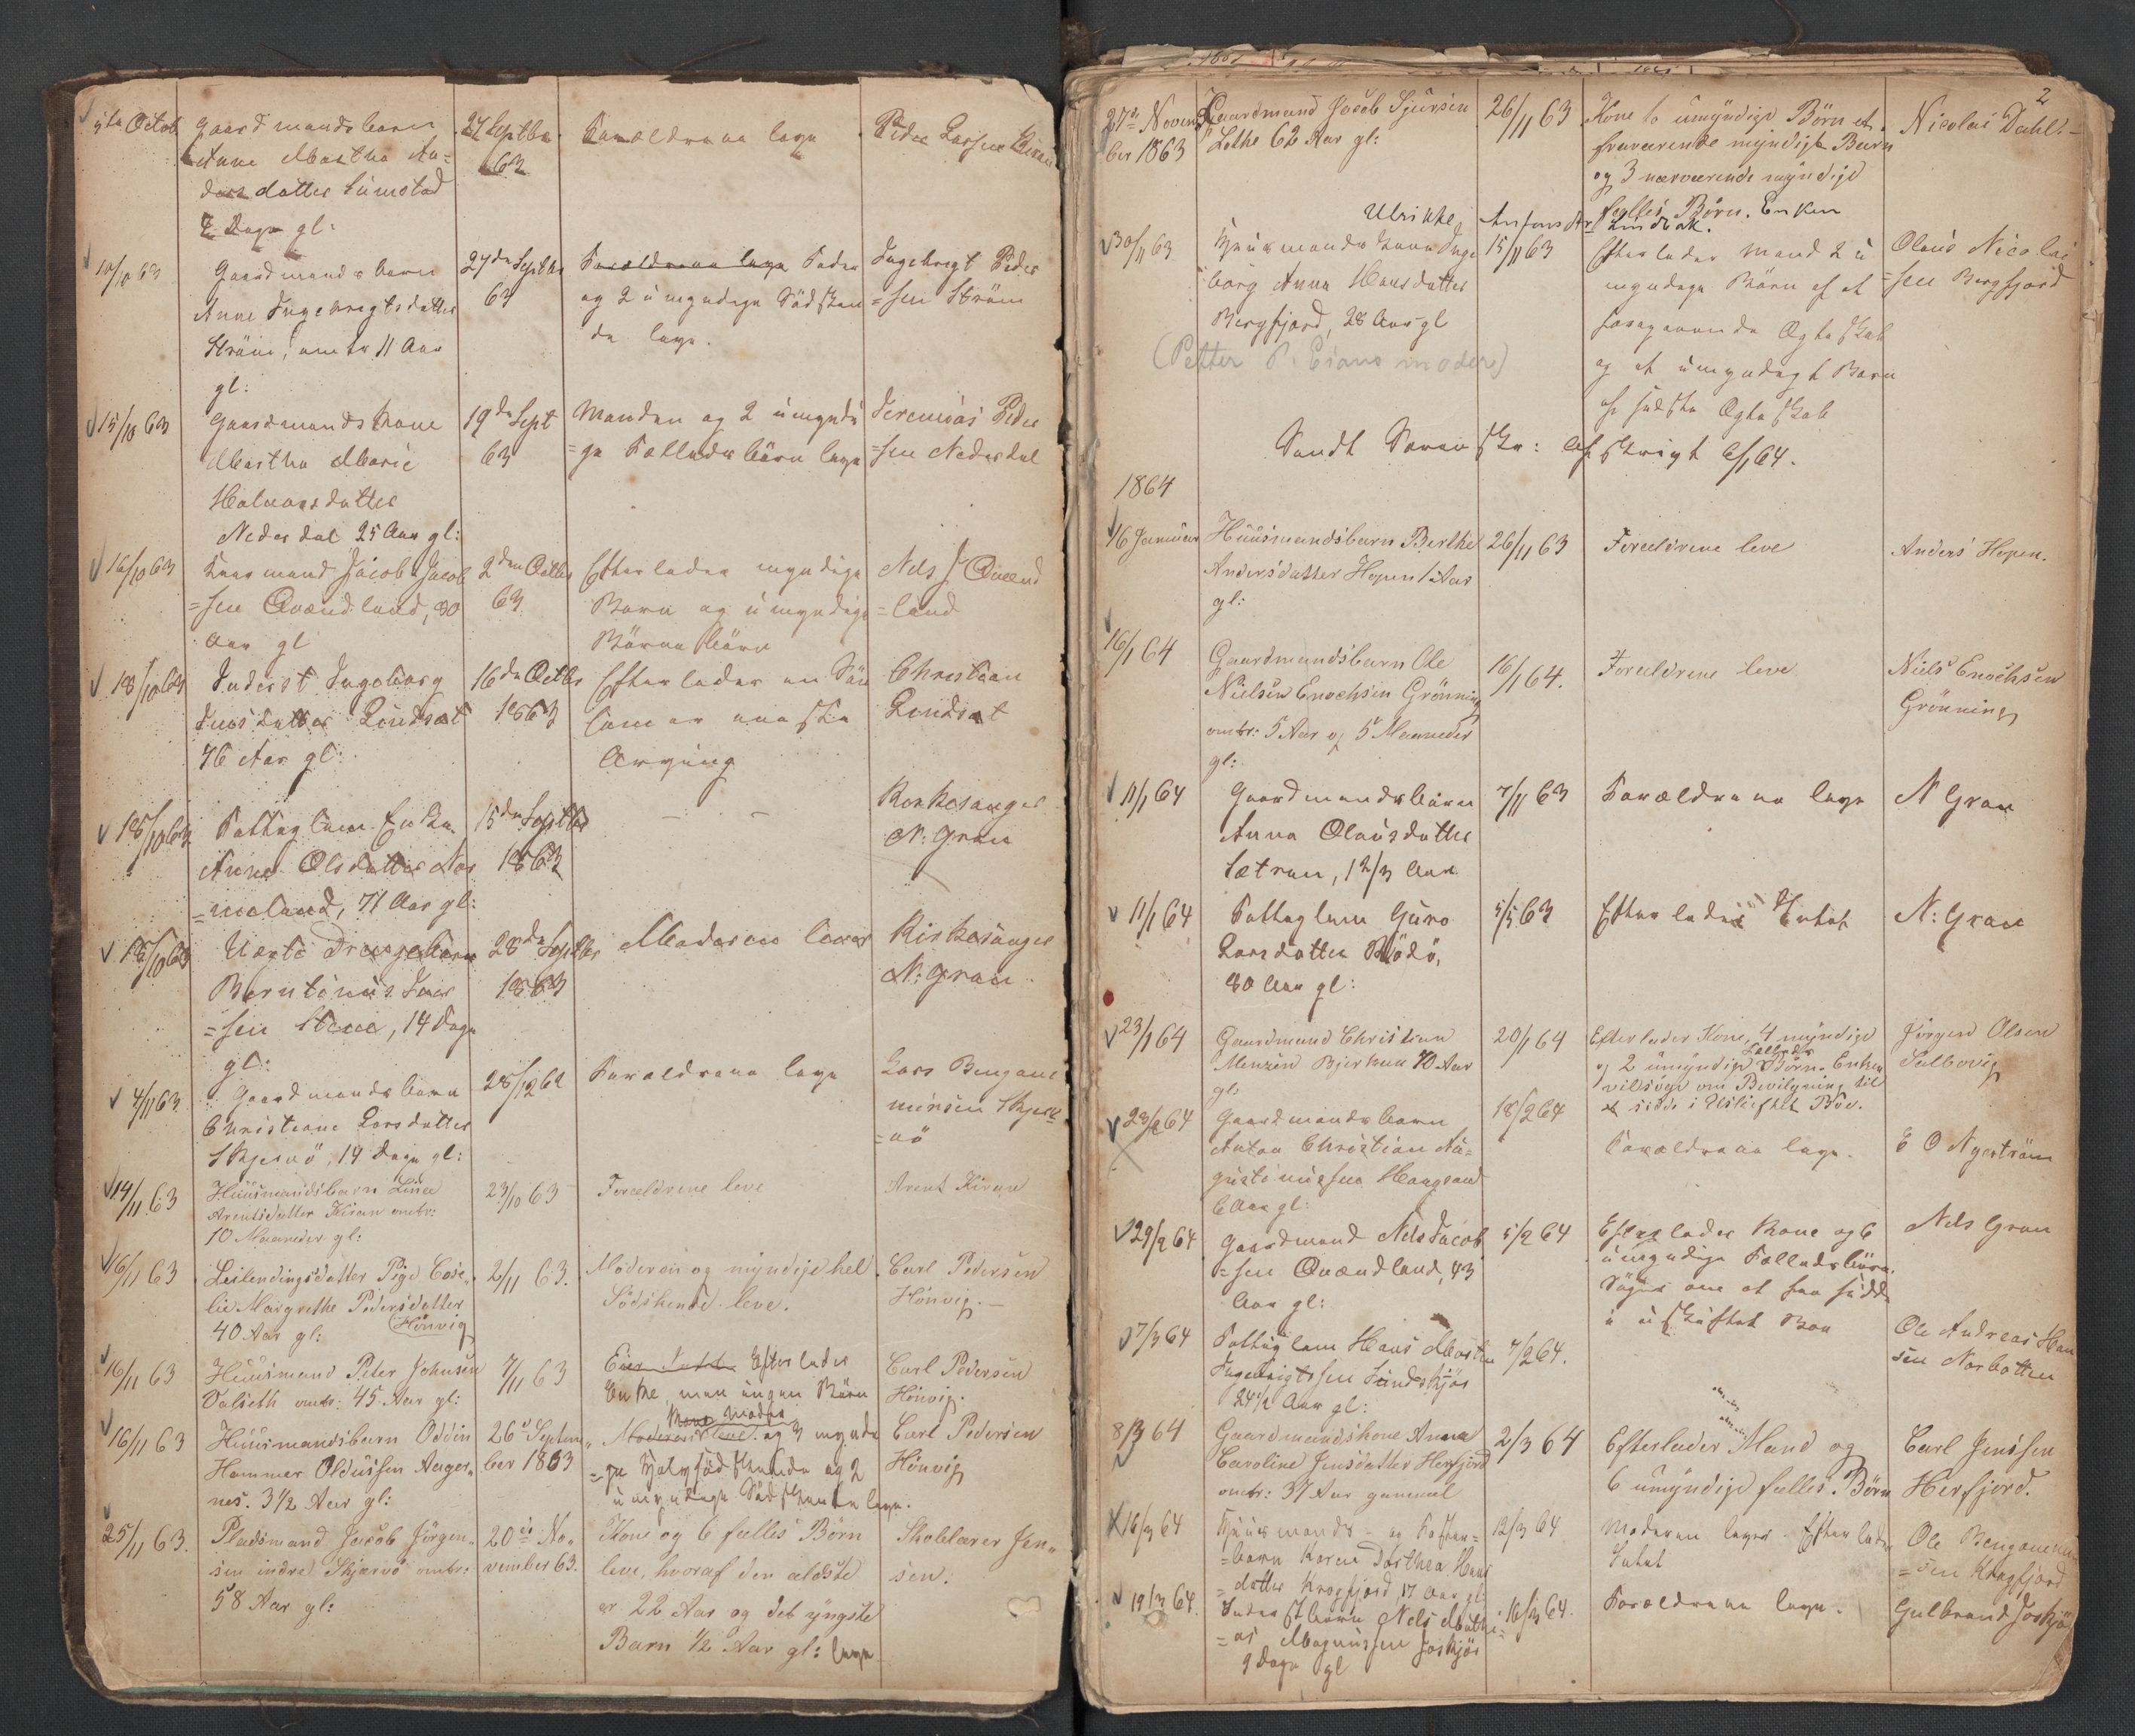 5te Octob
Gaardmandsbarn
Anne Martha An=
dersdatter Sümstad
7 Dage gl:
27 Septbr
63
Foræeldrene leve
Peder Larsen
10/10 63
Gaardmandsbarn
Anne Ingebregtsdatter
Ström, omtr 11 Aar
gl:
27de Septbr
63
Forældrene leve Fader
og 2 ümyndige Södsken
de leve.
Ingebregt Peder
=sen Ström
15/10 63
Gaardmandskone
Martha Marie
Halvorsdatter
Nederdal 25 Aar gl:
19de Sept
63
Manden og 2 ümyndi
=ge Fælledsbörn leve
Jeremias Peder
=sen Nederdal
16/10 63
Kaarmand Jacob Jacob
=sen Qvændland, 80
Aar gl
2den Octbr
63
Efterlader myndige
Børn og ümyndige
Börnebörn
Nels J Qvænd
=land
18/10 63
Inderst Ingeborg
Iversdatter Lindsæt
76 Aar gl:
16de Octbr
1863
Efterlader en Sön
som er eneste
Arving
Christian
Lindsæt
18/10 63
Fattiglem Enke
Anne Olsdatter Nor
=meland, 71 Aar gl:
15de Septbr
1863
- -
Kirkesanger
N: Gran
18/10 63
Uægte Drengebarn
Berntinüs Iver
=sen Stene, 14 Dage
gl:
28de Septbr
1863
Moderen lever
Kirkesanger
N: Gran
4/11 63
Gaardmandsbarn
Christiane Larsdatter
Skjervö, 14 Dage gl:
28/12 62
Forældrene leve
Lars Bengam
minsen Skjer
=vö
14/11 63
Huusmandsbarn Lina
Arentsdatter Kiran omtr:
10 Maaneder gl:
23/10 63
Forældrene leve
Arent Kiran
16/11 63
Leilendingsdatter Pige Cose„
lie Margrethe Pedersdatter
40 Aar gl: Hönvig
2/11 63.
Moderen og myndige hel
Södskende leve.
Carl Pedersen
Hönvig. -
16/11 63
Huusmand Peter Johnsen
Dalseth omtr: 45 Aar gl:
7/11 63
Efterlader
Enke, men ingen Börn
Carl Pedersen
Hönvig.
16/11 63
Huusmandsbarn Oddin
Hammer Oldüssen Aarger„
nes. 3 1/2 Aar gl:
26de Septem„
ber 1863
Moder
og 3 myndi
=ge Halvsödskende og 2
ümyndige Södskende leve.
Carl Pedersen
Hönvig
25/11 63.
Pladsmand Jacob Jörgen„
sen indre Skjærvö omtr:
58 Aar gl:
20de No„
vember 63.
Kone og 6 fælles Börn
leve, hvoraf den ældste
er 22 Aar og det yngste
Barn 1/2 Aar gl: leve
Skolelærer Jen„
sen.
2
27de Novem
ber 1863
Gaardmand Jacob Sjursen
Lothe 62 Aar gl:
26/11 63
Kone 1o ümyndige Börn et
fraværende myndigt Barn
og 3 nærværende myndige
fælles Börn. Enken
Nicolai Dahl. -
30/11 63
Ulrikke
Huusmandskone Inge
borg Anna Hansdatter
Bergfjord, 28 Aar gl
(Petter P. Erans moder)
15/11 63
Efterlader Mand 2 ü
myndige Börn af et
foregaaende Ægteskab
og et ümyndigt Barn
af sidste Ægteskab
Olaus Nicolai
=sen Bergfjord
Sendt Sorenskr: Afskrift 6/1 64.
1864
16 Januar
Huusmandsbarn Berthe
Andersdatter Hopen 1 Aar
gl:
26/11 63
Forældrene leve
Anders Hopen.
16/1 64
Gaardmandsbarn Ole
Nielsen Enochsen Grönning
omtr: 5 Aar og 5 Maaneder
gl:
16/1 64.
Forældrene leve
Niels Enochsen
Grönning
11/1 64
Gaardmandsbarn
Anna Olausdatter
Sætran, 1 2/3 Aar
7/11 63
Forældrene leve
N Gran
11/1 64
Fattiglem Guro
Larsdatter Rödö,
80 Aar gl:
5/5 63
Efterlader Intet
N: Gran
23/1 64
Gaardmand Christian
Menzen Bjerkan 70 Aar
gl:
20/1 64
Efterlader Kone, 4 myndige
og 2 ümyndige Fælleds Börn. Enken
vil söge om Bevilgning til
at sidde i Uskiftet Bo.
Jörgen Olsen
Selbovig
23/2 64
Gaardmandsbarn
Anton Christian Au=
gustinussen Haugsand
6 Aar gl:
18/2 64
Forældrene leve.
E O Nyström
29/2 64
Gaardmand Nels Jacob
=sen Qvændland, 43
Aar gl:
5/2 64
Efterlader Kone og 6
ümyndige Fælledsbörn.
Söger om at faa sidde
i üskiftet Boe
Nels Gran
7/3 64
Fattiglem Hans Martin
Ingebrigtssen Sündskjær
24 1/2 Aar gl:
7/2 64.
Ole Andreas Han
sen Norbotten
8/3 64
Gaardmandskone Anna
Caroline Jensdatter Herfjord
omtr: 37 Aar gammel
2/3 64
Efterlader Mand og
6 ümyndige fælles. Börn
Carl Jenssen
Herfjord.
16/3 64
Huusmands- og Foster=
=barn Karen Dorthea Hans
=datter Kragfjord, 17 Aar gl:
12/3 64
Moderen lever. Efterlader
Intet
Ole Bengamin
=sen Kragfjord
19/3 64.
Inderstbarn Nels Math
=as Magnüssen Joskjær
9 Dage gl
16/3 64.
Forældrene leve.
Gulbrand Joskjær